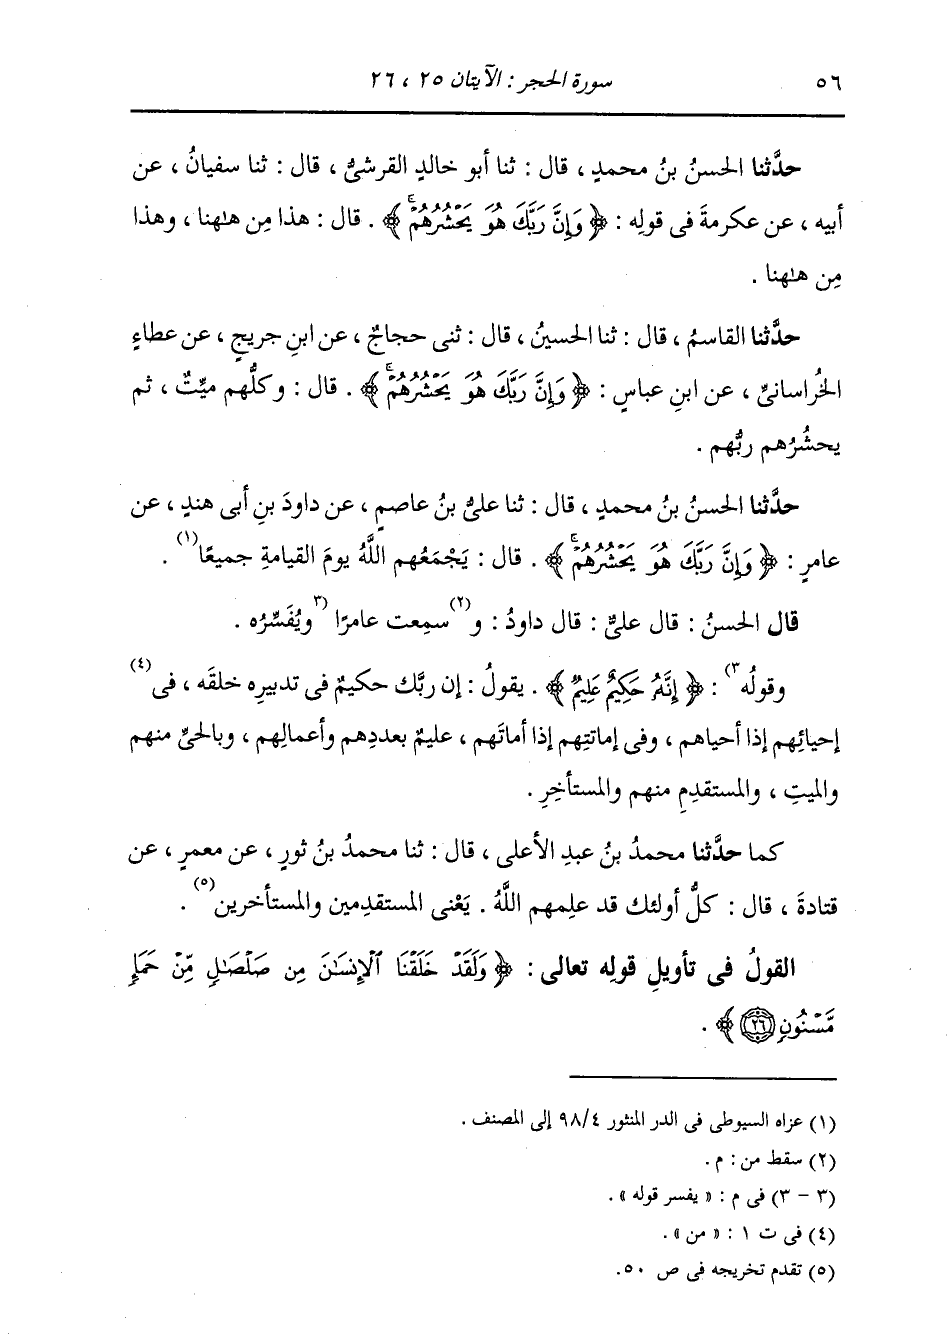 ٥٦ سورة الحجر : الآيتان ٢٥ ، ٢٦
حدَّثنا الحسنُ بنُ محمدٍ ، قال : ثنا أبو خالدٍ القرشيُّ ، قال : ثنا سفيانُ ، عن
أبيه ، عن عكرمةَ فى قولِه : ﴿ وَإِنَّ رَبَّكَ هُوَ يَحْشُرُهُمْ ﴾ . قال : هذا مِن هٰهنا ، وهذا
مِن هٰهنا .
حدَّثنا القاسمُ ، قال : ثنا الحسينُ ، قال : ثنى حجاجٌ ، عن ابنِ جريجٍ ، عن عطاءٍ
الخُراسانىِّ ، عن ابنِ عباسٍ : ﴿ وَإِنَّ رَبَّكَ هُوَ يَحْشُرُهُمْ ﴾ . قال : وكلُّهم ميِّتٌ ، ثم
يحشُرُهم ربُّهم .
حدَّثنا الحسنُ بنُ محمدٍ ، قال : ثنا علىُّ بنُ عاصمٍ ، عن داودَ بنِ أبى هندٍ ، عن
عامرٍ : ﴿ وَإِنَّ رَبَّكَ هُوَ يَحْشُرُهُمْ ﴾ . قال : يَجْمَعُهم اللَّهُ يومَ القيامةِ جميعًا(١) .
قال الحسنُ : قال علىٌّ : قال داودُ : و(٢)سمِعت عامرًا (٣ويُفَسِّرُه .
وقولُه٣) : ﴿ إِنَّهُ حَكِيمٌ عَلِيمٌ ﴾ . يقولُ : إن ربَّك حكيمٌ فى تدبيرِه خلقَه ، فى(٤)
إحيائِهم إذا أحياهم ، وفى إماتتِهم إذا أماتَهم ، عليمٌ بعددِهم وأعمالِهم ، وبالحىِّ منهم
والميتِ ، والمستقدِمِ منهم والمستأخِرِ .
كما حدَّثنا محمدُ بنُ عبدِ الأعلى ، قال : ثنا محمدُ بنُ ثورٍ ، عن معمرٍ ، عن
قتادةَ ، قال : كلُّ أولئك قد علِمهم اللَّهُ . يَعْنى المستقدِمين والمستأخرين(٥) .
القولُ فى تأويلِ قولِه تعالى : ﴿ وَلَقَدْ خَلَقْنَا ٱلْإِنسَٰنَ مِن صَلْصَٰلٍ مِّنْ حَمَإٍ
مَّسْنُونٍ ٢٦ ﴾ .
(١) عزاه السيوطى فى الدر المنثور ٩٨/٤ إلى المصنف .
(٢) سقط من : م .
(٣ - ٣) فى م : « يفسر قوله » .
(٤) فى ت ١ : « من » .
(٥) تقدم تخريجه فى ص ٥٠.